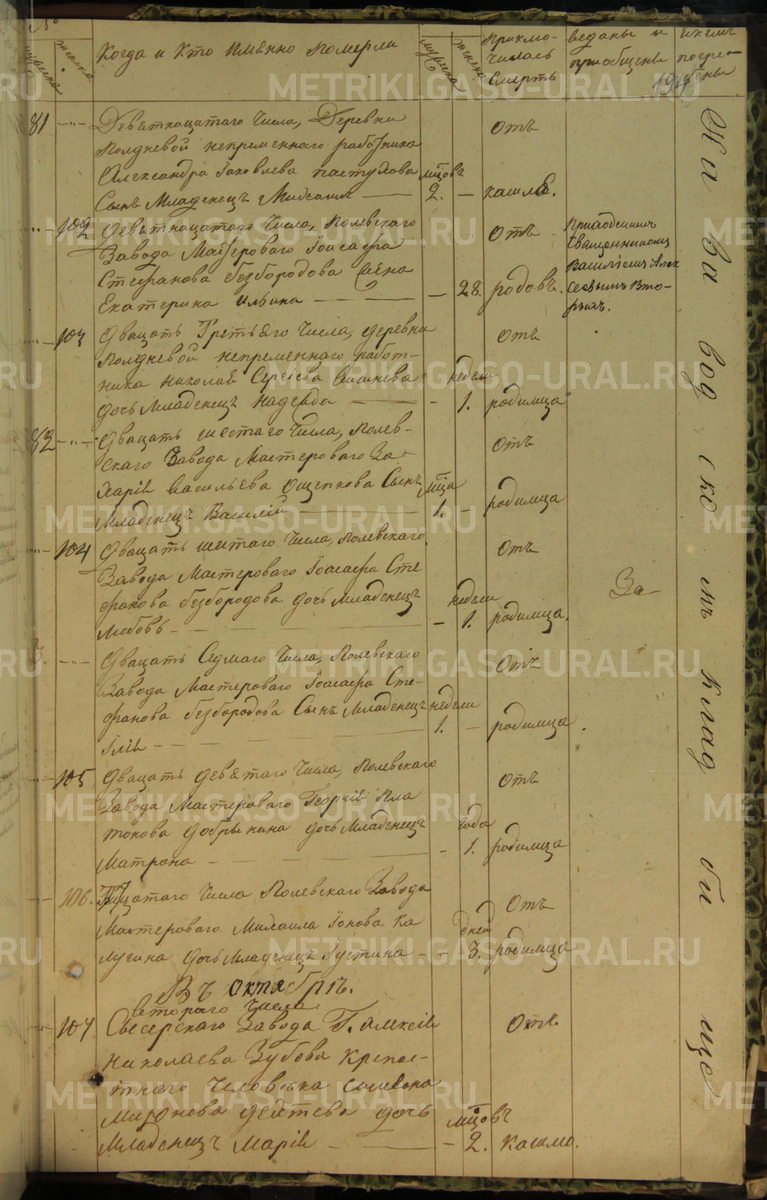 №
мужеска
женска
Когда и Кто имянно померли
мужеска
женска
приклю-
чилась
Смерть
веданы и
приобщены
и кемъ
погре-
бены
81
Деветнацатаго числа, Деревни
Полдневой непременнаго работника
Александра Яковлева пастухова
Сынъ Младенецъ
мцовъ
2.
отъ
кашлю.
102
Деветнацатаго числа, Полевскаго
Завода Мастероваго Іоасафа
Стефанова безбородова жена
Екатерина Ильина
28.
отъ
родовъ.
приходскимъ
Священникомъ
Васильемъ Алек
сеевымъ Вто-
рыхъ.
103
Двацать Третьяго числа, деревни
Полдневой непременнаго работ-
ника Николая Сергеева
дочь Младенецъ Надежда
недели
1.
отъ
родимца
82
Двацать шестаго числа, Полев-
скаго Завода Мастероваго За-
харія Васильева Ощепкова Сынъ
Младенецъ Василій
мца
1.
отъ
родимца
104
Двацать шестаго числа, Полевскаго
Завода Мастероваго Іоасафа Сте
фанова безбородова дочь Младенецъ
Любовь
недели
1.
отъ
родимца.
3.
Двацать Седмаго числа, Полевскаго
Завода Мастероваго Іоасафа Сте-
фанова безбородова Сынъ Младенецъ
Ілія
недели
1.
отъ
родимца.
105
Двацать деветаго числа, Полевскаго
Завода Мастероваго Георгія Пла
тонова добрынина дочь Младенецъ
Матрона
года
1.
отъ
родимца
106.
Трицатаго числа Полевскаго Завода
Мастероваго Михаила Іонова Ка
лугина дочь Младенецъ Іустина
дней
3.
отъ
родимца
Въ октябрѣ.
втораго числа
107
Сысерскаго Завода Г. Алексія
Николаева Зубова крепос-
тнаго человека
Миронова дочь
Младенецъ Марія
мцовъ
2.
отъ
кашлю.
За
На заводскомъ кладбище
METRIKI.GASO-URAL.RU